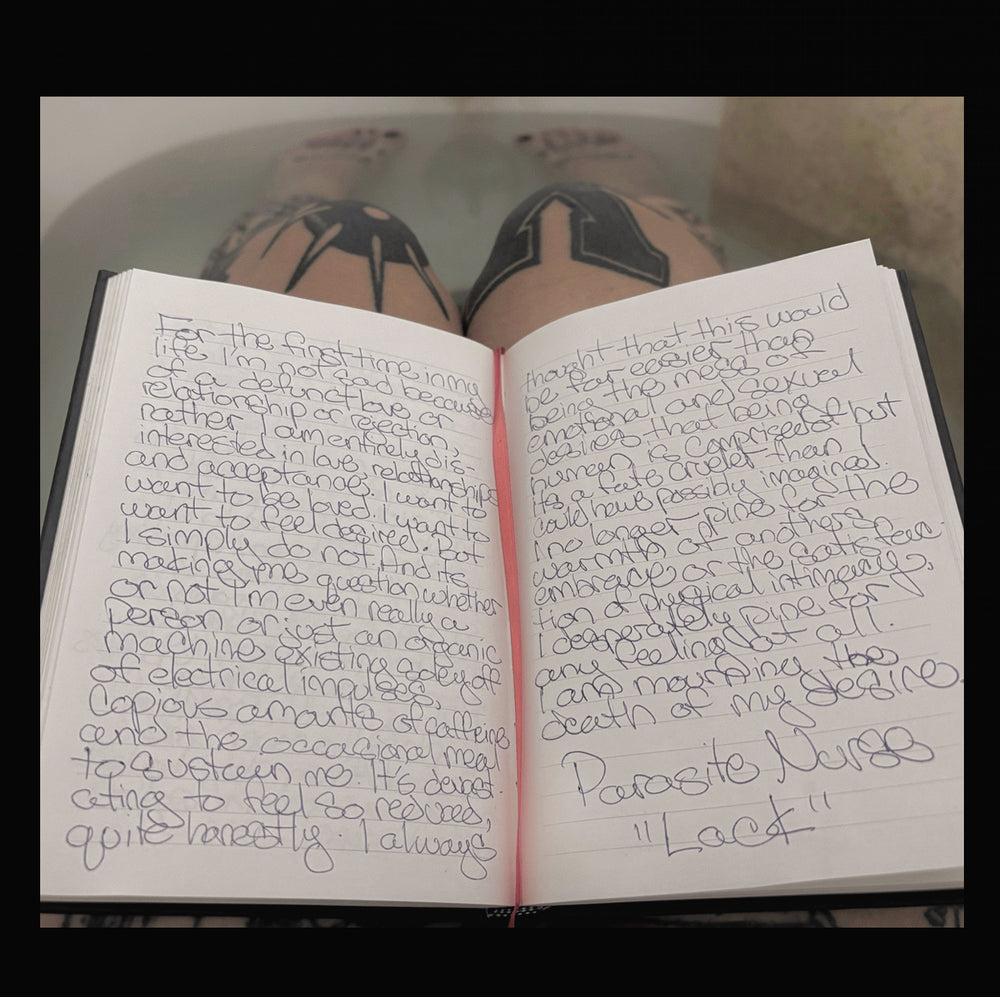 For the first time in my
life I'm not sad because
of a defunct love or
relationship or rejection,
rather I am entirely dis-
interested in love, relationships
and acceptance. I want to
want to be loved. I want to
want to feel desired. But
I simply do not. And its
making me question whether
or not I'm even really a
person or just an organic
machine existing solely off
of electrical impulses,
copious amounts of caffeine
and the occasional meal
to sustain me. It's devast-
ating to feel so reduced,
quite honestly. I always
thought that this would
be far easier than
being the mess of
emotional and sexual
desires that being
human is comprised of but
its a fate crueler than I
could have possibly imagined.
I no longer pine for the
warmth of anothers
embrace or the satisfac-
tion of physical intimacy,
I desperately pine for
any feeling at all.
I am mourning the
death of my desire.
Parasite Nurse
"Lack"